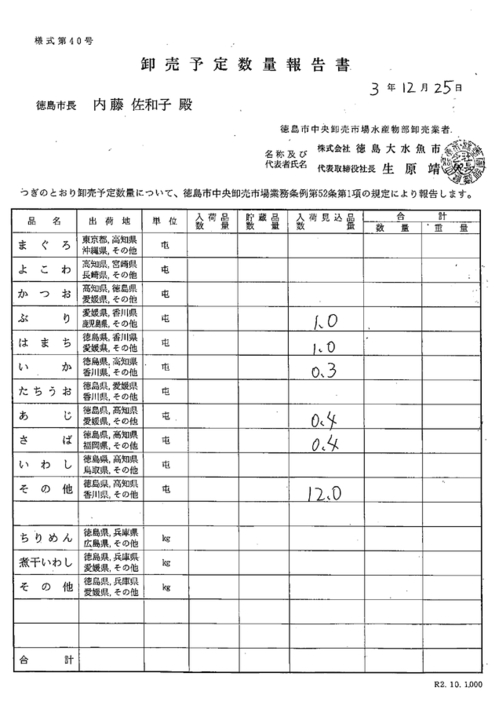 様式第40号
卸売予定数量報告書
3年12月25日
徳島市長 内藤 佐和子 殿
徳島市中央卸売市場水産物部卸売業者
名称及び 株式会社 徳島大水魚市
代表者氏名 代表取締役社長 生原靖
つぎのとおり卸売予定数量について、徳島市中央卸売市場業務条例第52条第1項の規定により報告します。
品名 出荷地 単位 入荷品数量 貯蔵品数量 入荷見込品数量 合計
数量 重量
まぐろ 東京都, 高知県 沖縄県, その他 屯
よこわ 高知県, 宮崎県 長崎県, その他 屯
かつお 高知県, 徳島県 愛媛県, その他 屯
ぶり 愛媛県, 香川県 鹿児島県, その他 屯 1.0
はまち 徳島県, 香川県 愛媛県, その他 屯 1.0
いか 徳島県, 高知県 香川県, その他 屯 0.3
たちうお 徳島県, 愛媛県 香川県, その他 屯
あじ 徳島県, 高知県 愛媛県, その他 屯 0.4
さば 徳島県, 高知県 福岡県, その他 屯 0.4
いわし 徳島県, 高知県 鳥取県, その他 屯
その他 徳島県, 高知県 香川県, その他 屯 12.0
ちりめん 徳島県, 兵庫県 広島県, その他 kg
煮干いわし 徳島県, 兵庫県 愛媛県, その他 kg
その他 徳島県, 兵庫県 愛媛県, その他 kg
合計
R2.10.1,000